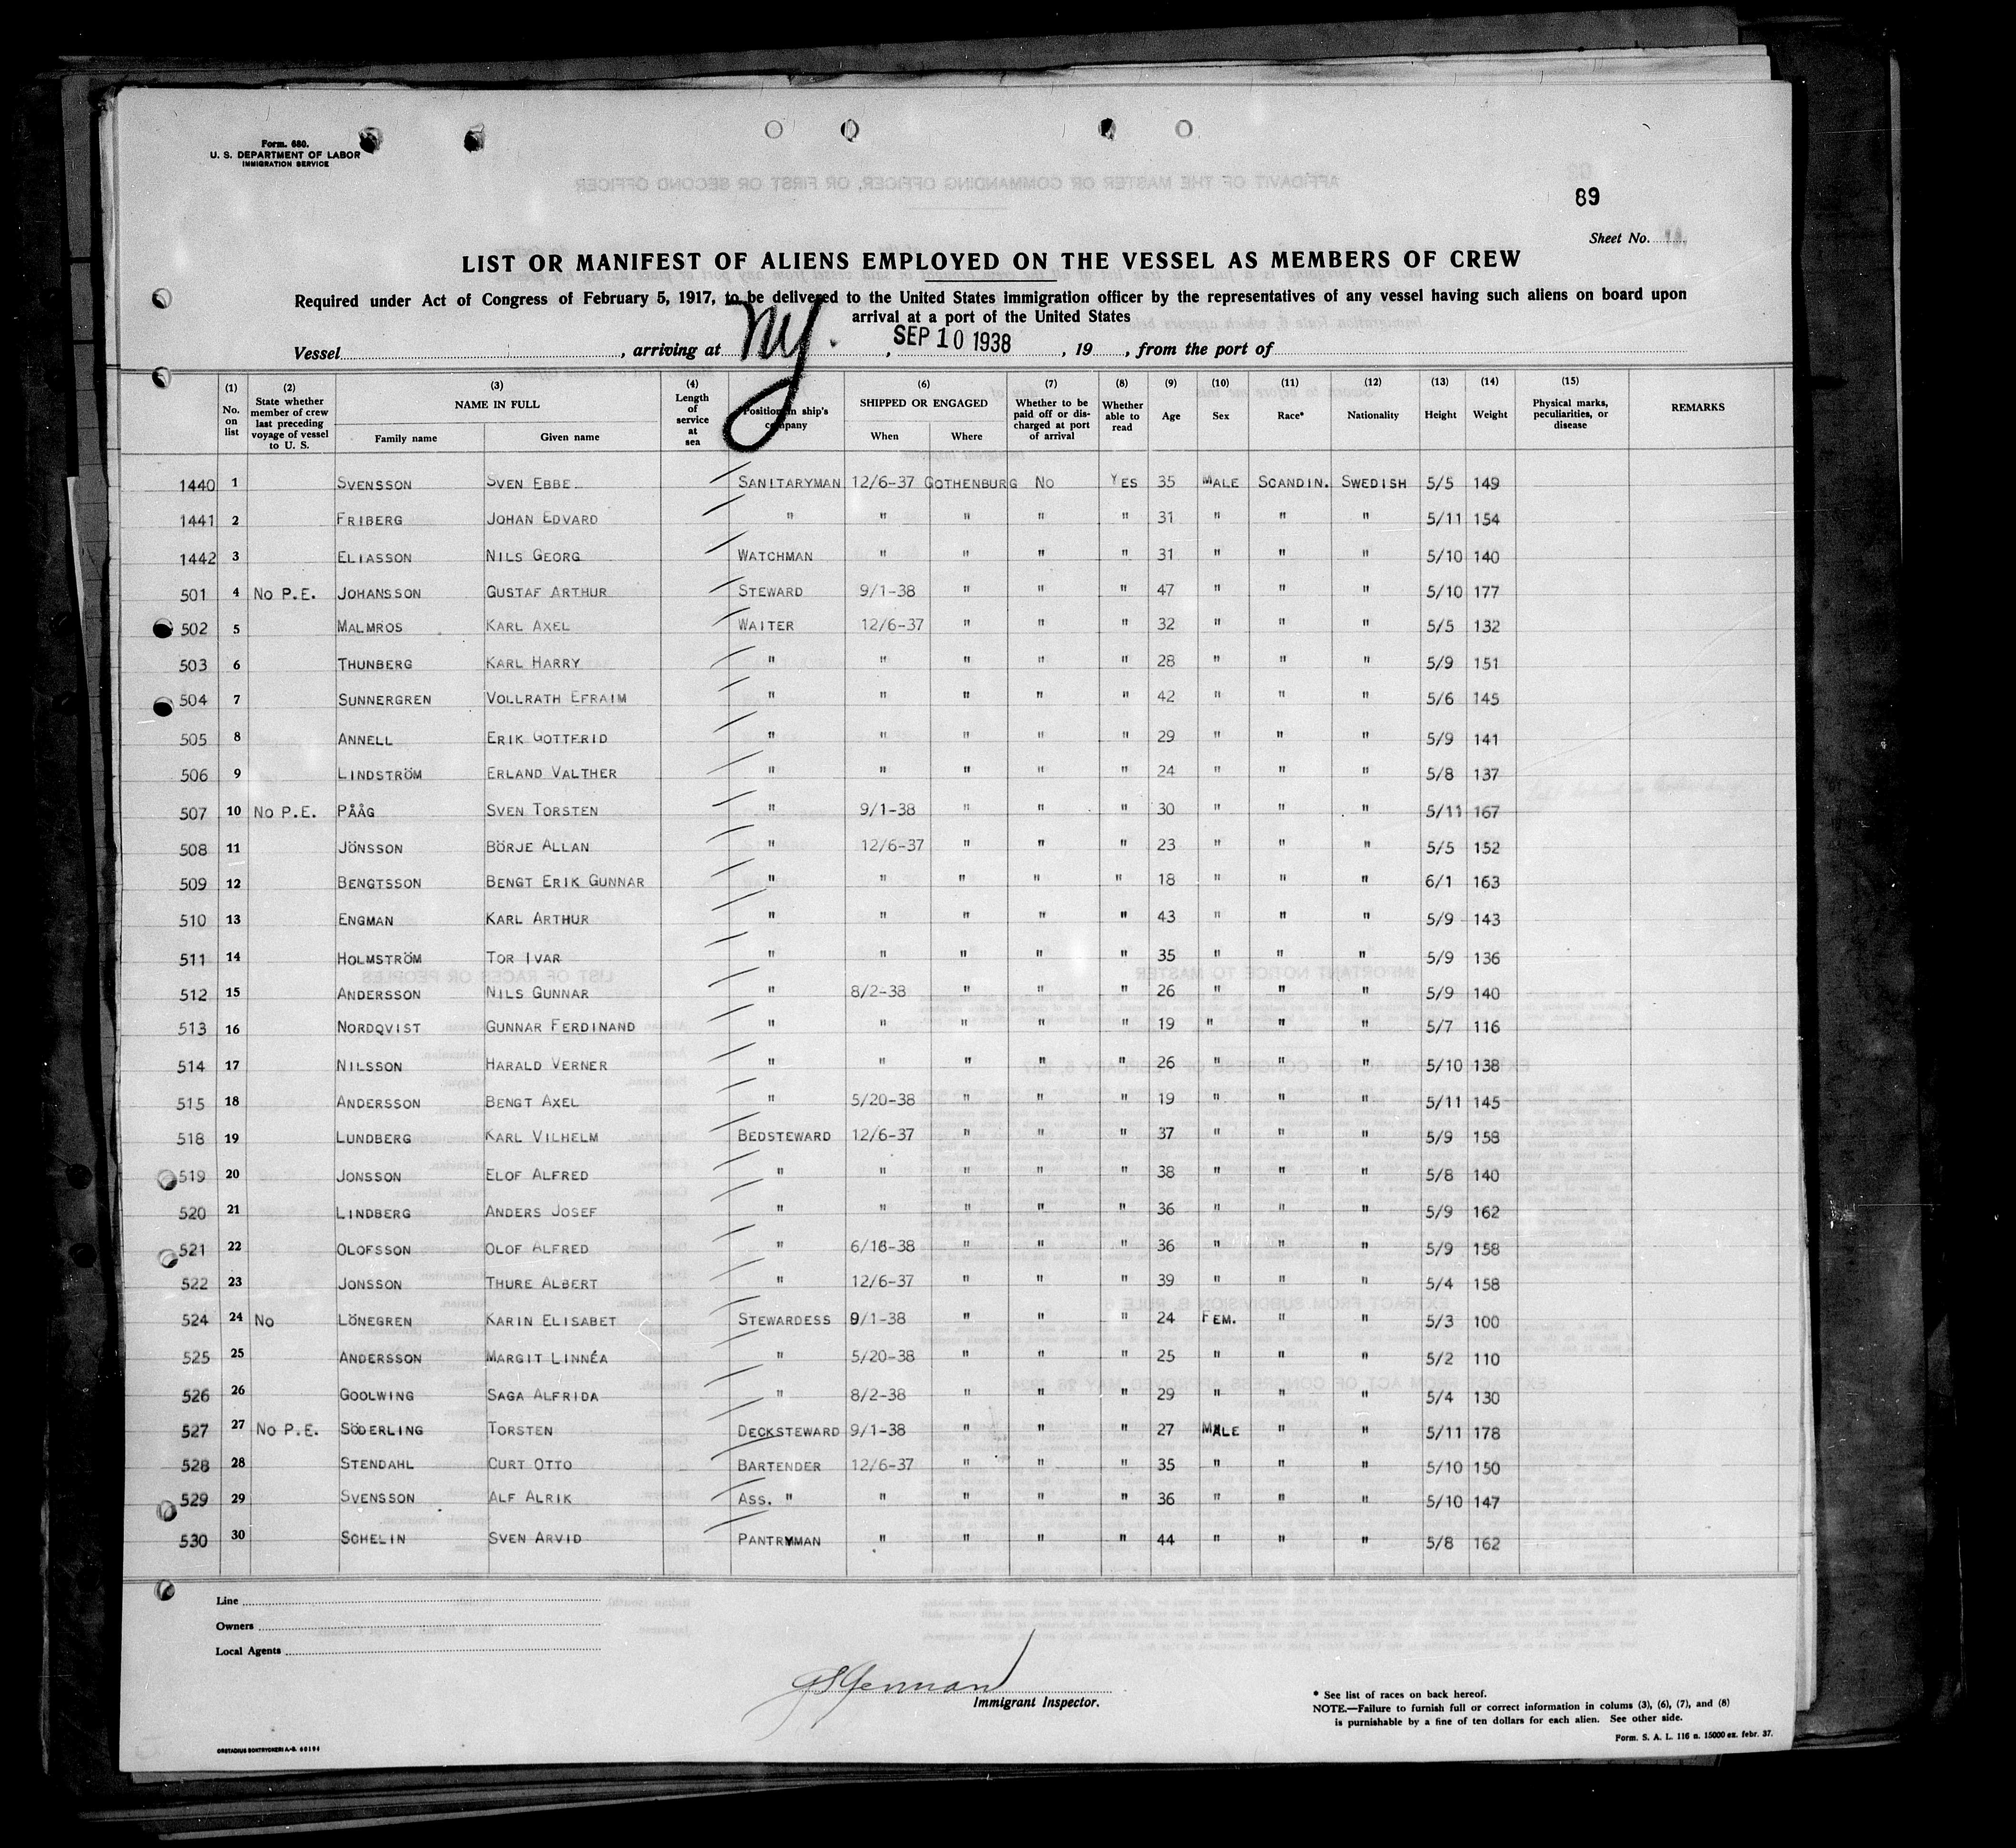 Form. 680.
U. S. DEPARTMENT OF LABOR
IMMIGRATION SERVICE
89
Sheet No.
LIST OR MANIFEST OF ALIENS EMPLOYED ON THE VESSEL AS MEMBERS OF CREW
Required under Act of Congress of February 5, 1917, to be delivered to the United States immigration officer by the representatives of any vessel having such aliens on board upon
arrival at a port of the United States
Vessel , arriving at NY. , SEP 10 1938 , 19 , from the port of
(1) No. on list (2) State whether member of crew last preceding voyage of vessel to U. S. (3) NAME IN FULL Family name Given name (4) Length of service at sea Position in ship's company (6) SHIPPED OR ENGAGED When Where (7) Whether to be paid off or discharged at port of arrival (8) Whether able to read (9) Age (10) Sex (11) Race* (12) Nationality (13) Height (14) Weight (15) Physical marks, peculiarities, or disease REMARKS
1440 1 SVENSSON SVEN EBBE SANITARYMAN 12/6-37 GOTHENBURG NO YES 35 MALE SCANDIN. SWEDISH 5/5 149
1441 2 FRIBERG JOHAN EDVARD " " " " " 31 " " " 5/11 154
1442 3 ELIASSON NILS GEORG WATCHMAN " " " " 31 " " " 5/10 140
501 4 NO P.E. JOHANSSON GUSTAF ARTHUR STEWARD 9/1-38 " " " 47 " " " 5/10 177
502 5 MALMROS KARL AXEL WAITER 12/6-37 " " " 32 " " " 5/5 132
503 6 THUNBERG KARL HARRY " " " " " 28 " " " 5/9 151
504 7 SUNNERGREN VOLLRATH EFRAIM " " " " " 42 " " " 5/6 145
505 8 ANNELL ERIK GOTTFRID " " " " " 29 " " " 5/9 141
506 9 LINDSTRÖM ERLAND VALTHER " " " " " 24 " " " 5/8 137
507 10 NO P.E. PÅÅG SVEN TORSTEN " 9/1-38 " " " 30 " " " 5/11 167
508 11 JÖNSSON BÖRJE ALLAN " 12/6-37 " " " 23 " " " 5/5 152
509 12 BENGTSSON BENGT ERIK GUNNAR " " " " " 18 " " " 6/1 163
510 13 ENGMAN KARL ARTHUR " " " " " 43 " " " 5/9 143
511 14 HOLMSTRÖM TOR IVAR " " " " " 35 " " " 5/9 136
512 15 ANDERSSON NILS GUNNAR " 8/2-38 " " " 26 " " " 5/9 140
513 16 NORDQVIST GUNNAR FERDINAND " " " " " 19 " " " 5/7 116
514 17 NILSSON HARALD VERNER " " " " " 26 " " " 5/10 138
515 18 ANDERSSON BENGT AXEL " 5/20-38 " " " 19 " " " 5/11 145
518 19 LUNDBERG KARL VILHELM BEDSTEWARD 12/6-37 " " " 37 " " " 5/9 158
519 20 JONSSON ELOF ALFRED " " " " " 38 " " " 5/8 140
520 21 LINDBERG ANDERS JOSEF " " " " " 36 " " " 5/9 162
521 22 OLOFSSON OLOF ALFRED " 6/16-38 " " " 36 " " " 5/9 158
522 23 JONSSON THURE ALBERT " 12/6-37 " " " 39 " " " 5/4 158
524 24 NO LÖNEGREN KARIN ELISABET STEWARDESS 9/1-38 " " " 24 FEM. " " 5/3 100
525 25 ANDERSSON MARGIT LINNÉA " 5/20-38 " " " 25 " " " 5/2 110
526 26 GOOLWING SAGA ALFRIDA " 8/2-38 " " " 29 " " " 5/4 130
527 27 NO P.E. SÖDERLING TORSTEN DECKSTEWARD 9/1-38 " " " 27 MALE " " 5/11 178
528 28 STENDAHL CURT OTTO BARTENDER 12/6-37 " " " 35 " " " 5/10 150
529 29 SVENSSON ALF ALRIK ASS. " " " " " 36 " " " 5/10 147
530 30 SCHELIN SVEN ARVID PANTRYMAN " " " " 44 " " " 5/8 162
Line
Owners
Local Agents
Immigrant Inspector.
* See list of races on back hereof.
NOTE.—Failure to furnish full or correct information in colums (3), (6), (7), and (8)
is punishable by a fine of ten dollars for each alien. See other side.
Form. S. A. L. 116 n. 15000 ex. febr. 37.